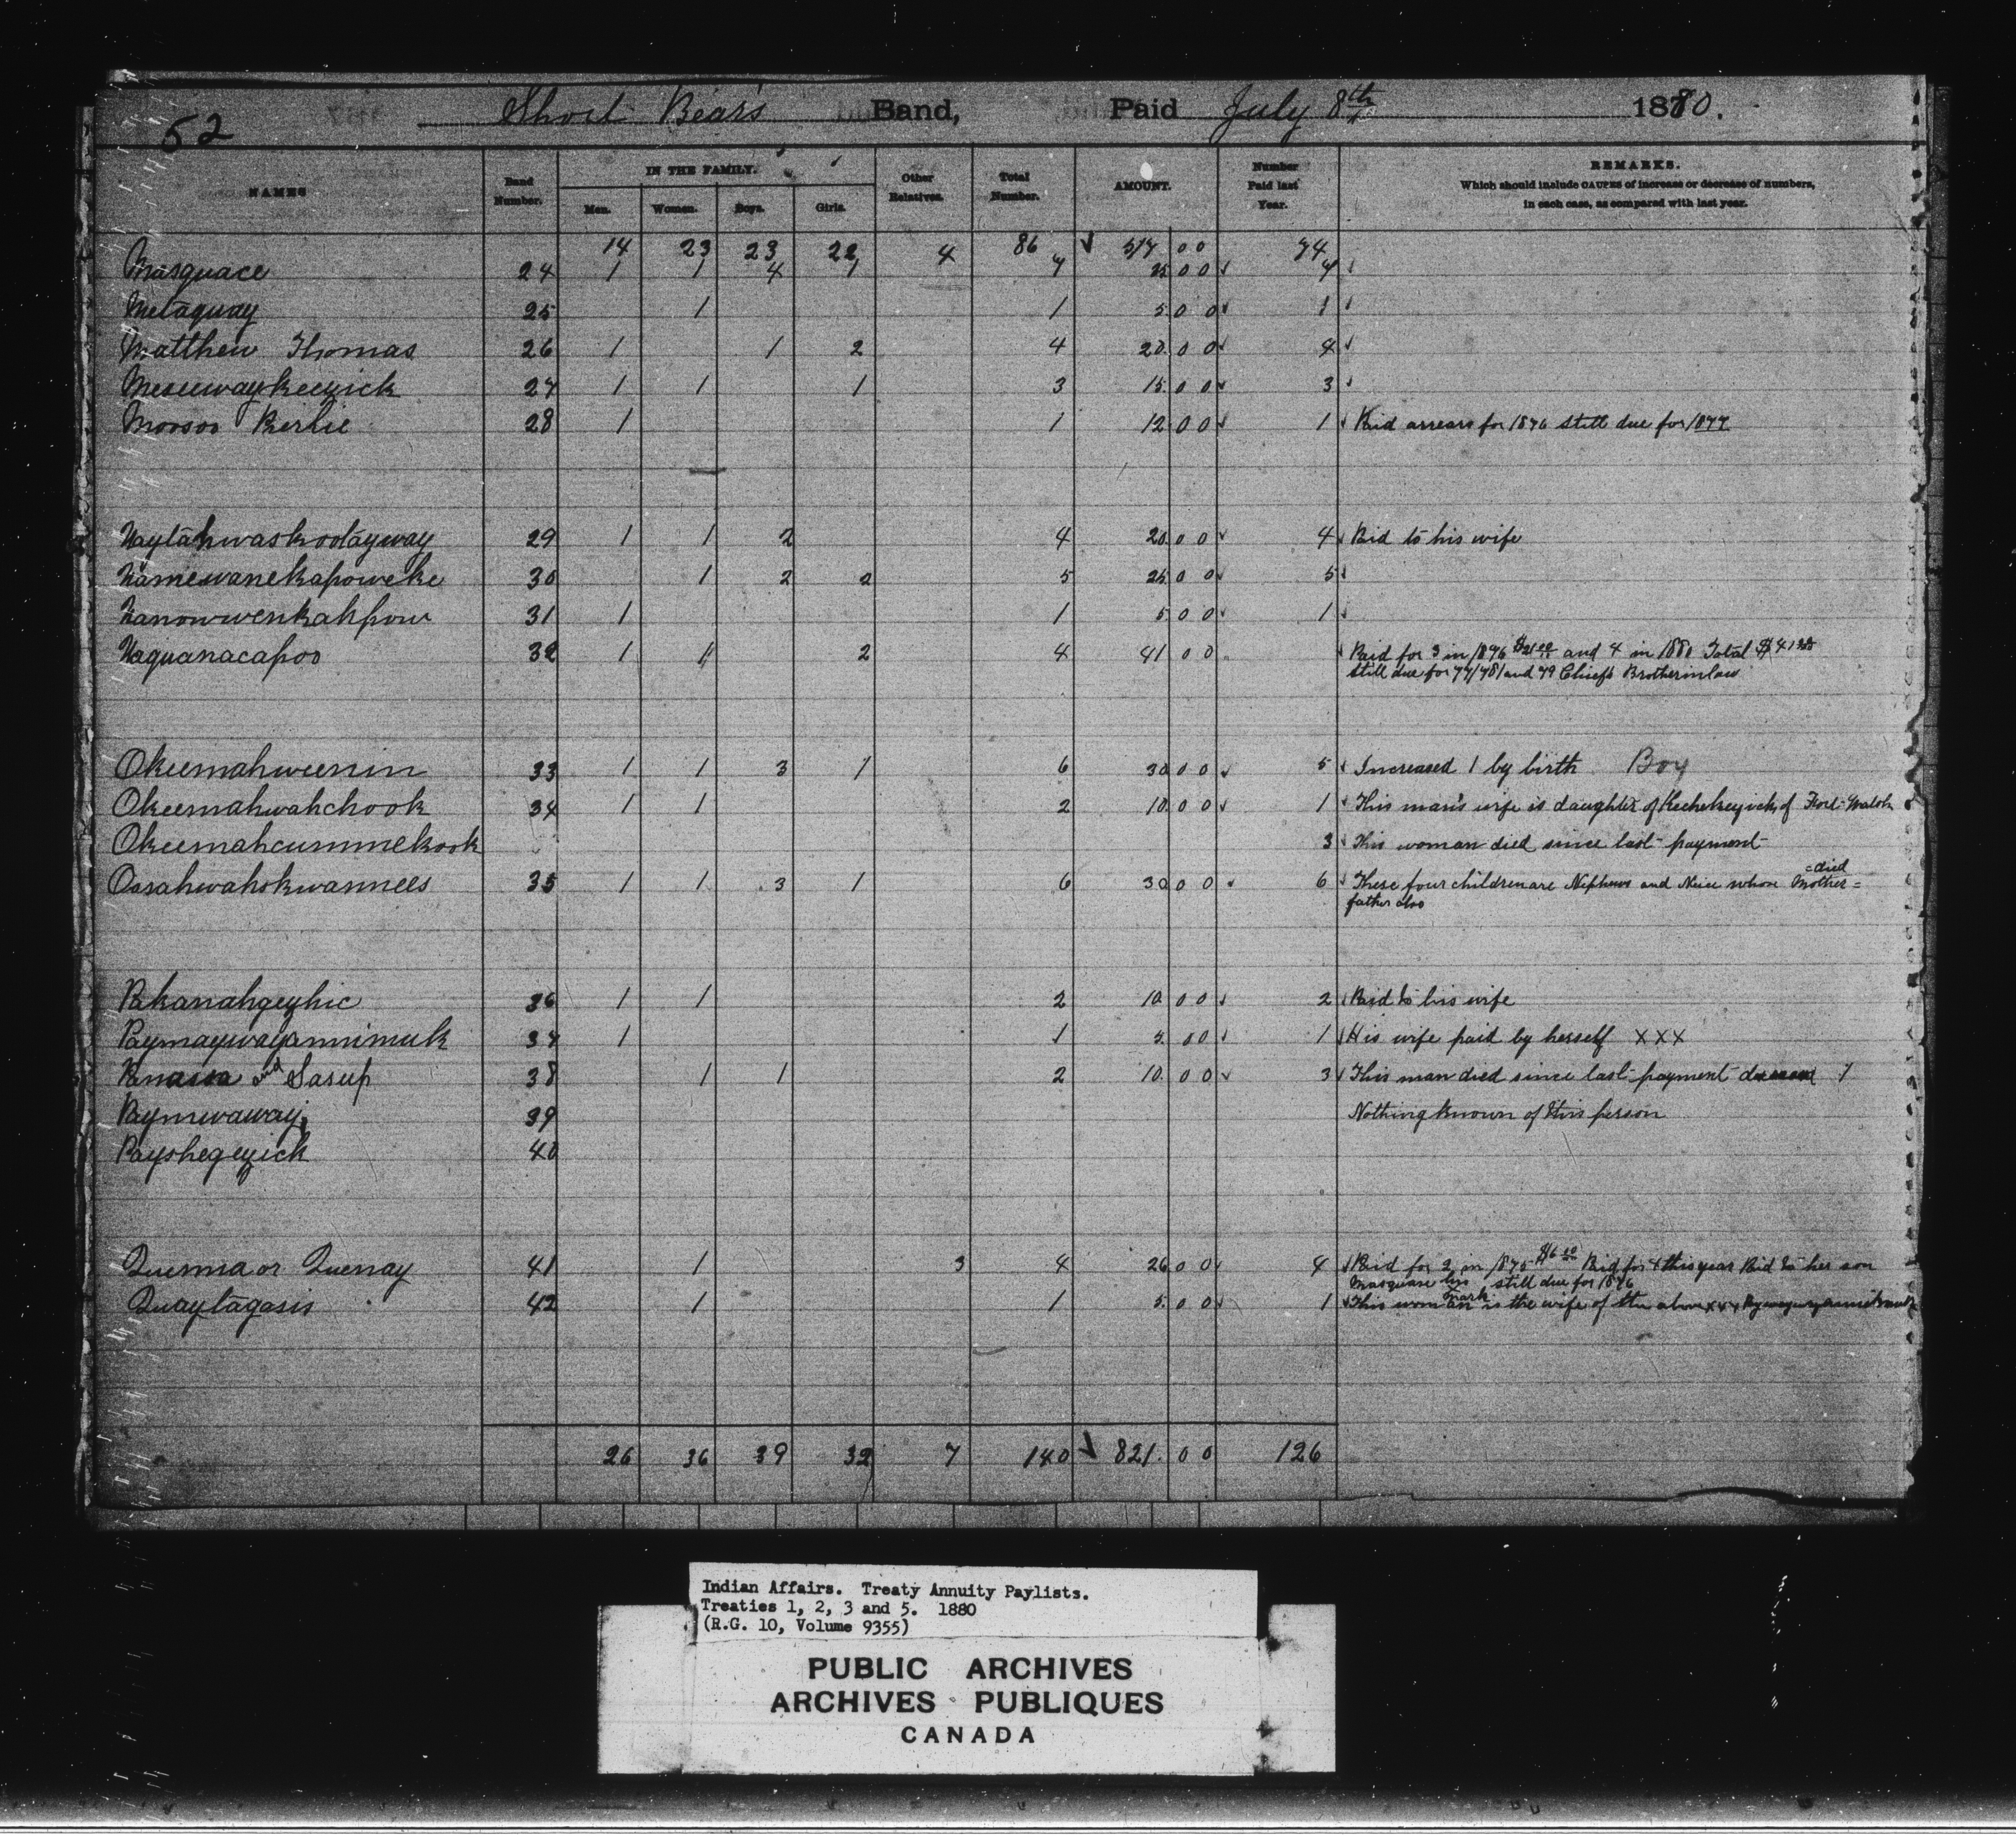 52 Short Bear's Band, Paid July 8th 1880.
NAMES Band Number. IN THE FAMILY. Men. Women. Boys. Girls. Other Relatives. Total Number. AMOUNT. Number Paid last Year. REMARKS.
Which should include CAUSES of increase or decrease of numbers,
in each case, as compared with last year.
14 23 23 22 4 86 ✓ 517 00 74
Masquace 24 1 1 4 1 7 25 00 ✓ 4 ✓
Metaquay 25 1 1 5 00 ✓ 1 ✓
Matthew Thomas 26 1 1 2 4 20 00 ✓ 4 ✓
Meseewaykeezick 27 1 1 1 3 15 00 ✓ 3 ✓
Moosoo 28 1 1 12 00 ✓ 1 ✓ Paid arrears for 1876 still due for 1877
Naytahwaskootayway 29 1 1 2 4 20 00 ✓ 4 ✓ Paid to his wife
Namewanekapoweke 30 1 2 2 5 25 00 ✓ 5 ✓
Nanowwenkahpow 31 1 1 5 00 ✓ 1 ✓
Naquanacapoo 32 1 1 2 4 41 00 ✓ Paid for 3 in 1876 $21.00 and 4 in 1880 Total $41.00
still due for 77/78/and 79 Chiefs Brotherinlaw
Okeemahweenin 33 1 1 3 1 6 30 00 ✓ 5 ✓ Increased 1 by birth Boy
Okeemahwahchook 34 1 1 2 10 00 ✓ 1 ✓ This man's wife is daughter of Kechekeyick of Fort Walsh
Okeemahcummekook 3 ✓ This woman died since last payment
Oosahwahskwannees 35 1 1 3 1 6 30 00 ✓ 6 ✓ These four children are Nephews and Neice whose Mother = =died
father also
Pakanahgezhic 36 1 1 2 10 00 ✓ 2 ✓ Paid to his wife
Paymaywayannimuk 37 1 1 5 00 ✓ 1 ✓ His wife paid by herself XXX
Panassa and Sasup 38 1 1 2 10 00 ✓ 3 ✓ This man died since last payment 1
Paymwaway 39 Nothing known of this person
Payshegezick 40
Quenna or Quenay 41 1 3 4 26 00 ✓ 4 ✓ Paid for 2 in 1875 $6.00 Paid for 4 this year Paid to her son
Masquase his mark still due for 1876
Quaytagasis 42 1 1 5 00 ✓ 1 ✓ This woman is the wife of the above xxx
26 36 39 32 7 140 ✓ 821 00 126
Indian Affairs. Treaty Annuity Paylists.
Treaties 1, 2, 3 and 5. 1880
(R.G. 10, Volume 9355)
PUBLIC ARCHIVES
ARCHIVES PUBLIQUES
CANADA